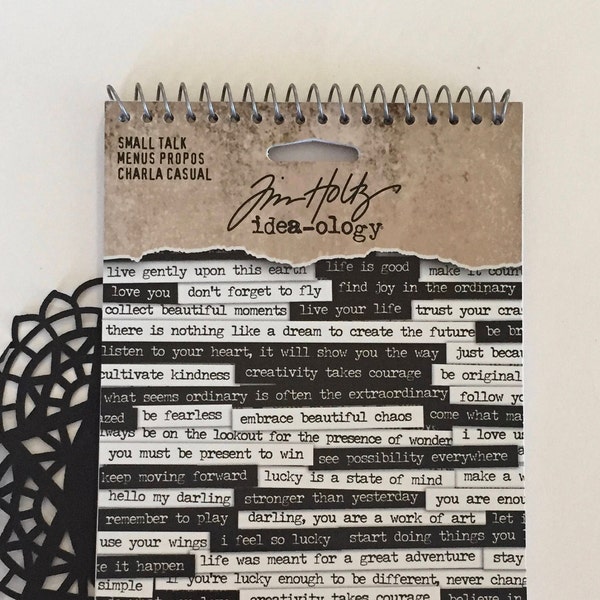 SMALL TALK
MENUS PROPOS
CHARLA CASUAL
Tim Holtz
idea-ology
live gently upon this earth life is good make it coun
love you don't forget to fly find joy in the ordinary
collect beautiful moments live your life trust your cra
there is nothing like a dream to create the future be br
listen to your heart, it will show you the way just becau
cultivate kindness creativity takes courage be original
what seems ordinary is often the extraordinary follow yo
azed be fearless embrace beautiful chaos come what ma
always be on the lookout for the presence of wonder i love u
you must be present to win see possibility everywhere
keep moving forward lucky is a state of mind make a w
hello my darling stronger than yesterday you are enou
remember to play darling, you are a work of art let i
use your wings i feel so lucky start doing things you
e it happen life was meant for a great adventure stay
simple if you're lucky enough to be different, never chang
creativity takes courage believe in